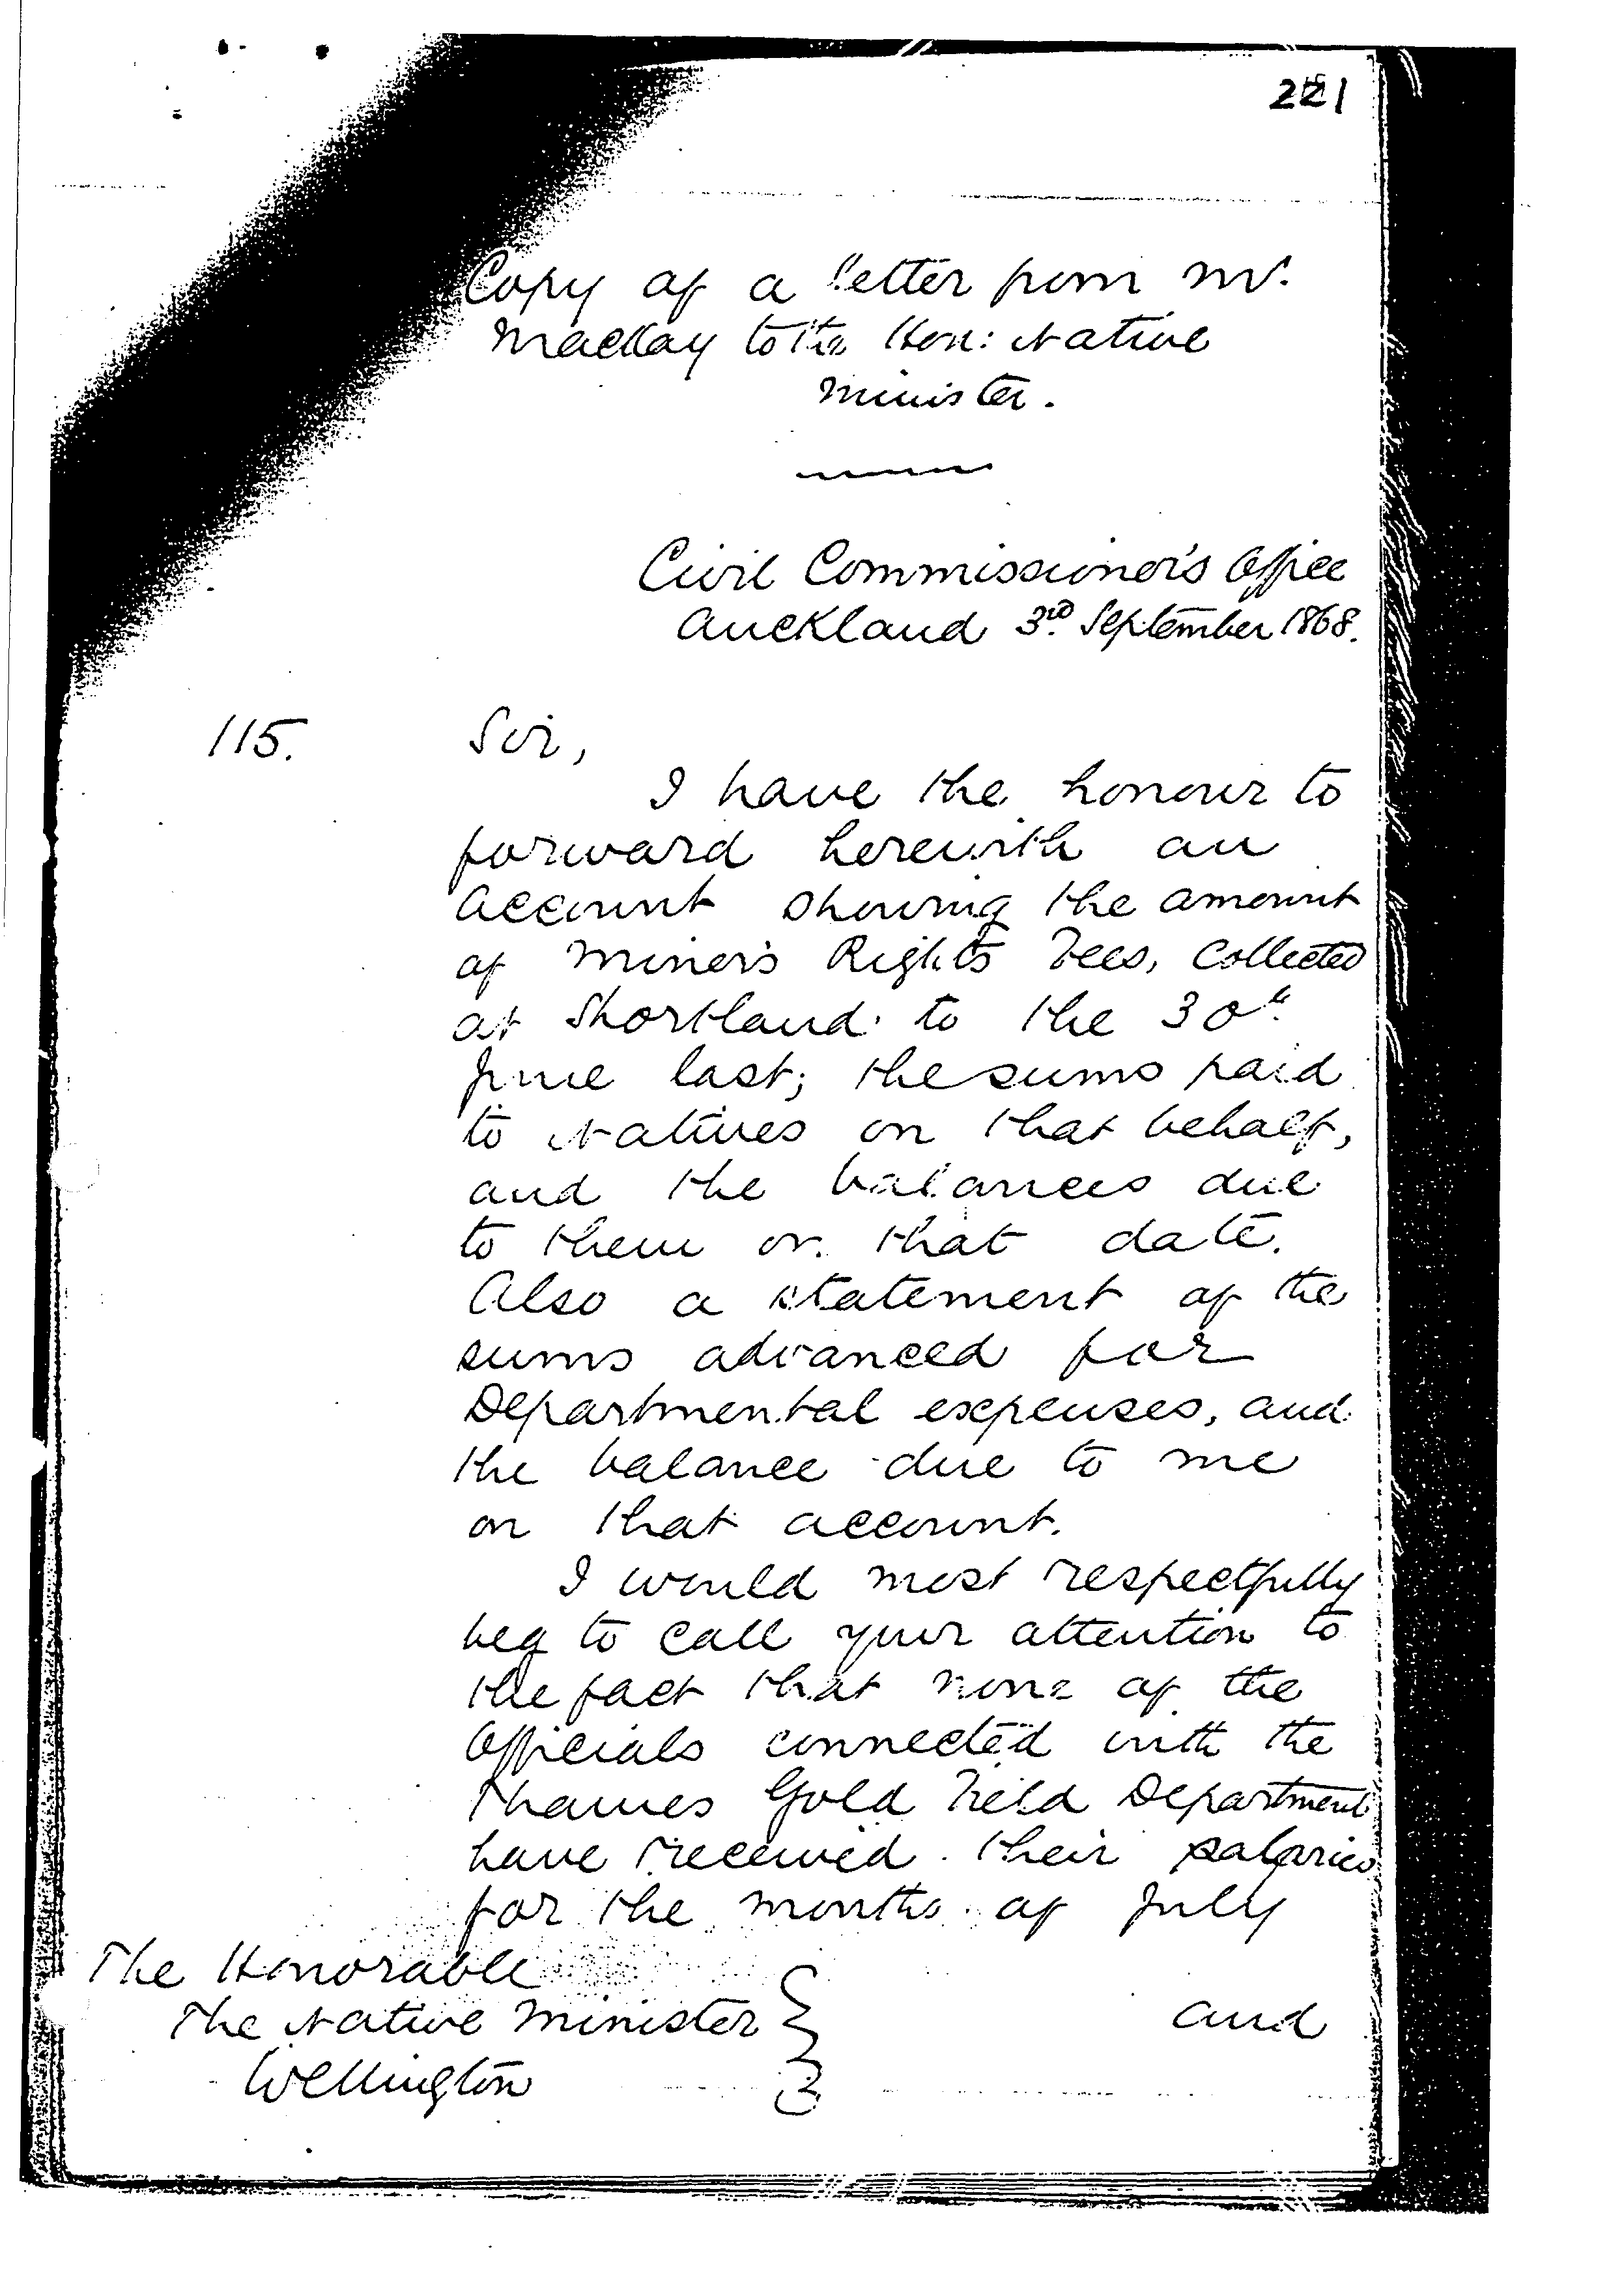 221
Copy of a letter from Mr.
Mackay to the Hon: Native
Minister.
Civil Commissioner's Office
Auckland 3rd. September 1868.
115.
Sir,
I have the honour to
forward herewith an
account showing the amount
of Miner's Rights Fees, collected
at Shortland to the 30th.
June last; the sums paid
to Natives on that behalf,
and the balances due
to them on that date.
Also a statement of the
sums advanced for
Departmental expenses, and
the balance due to me
on that account.
I would most respectfully
beg to call your attention to
the fact that none of the
Officials connected with the
Thames Gold Field Department
have received their salaries
for the months of July
The Honorable
The Native Minister
Wellington
and